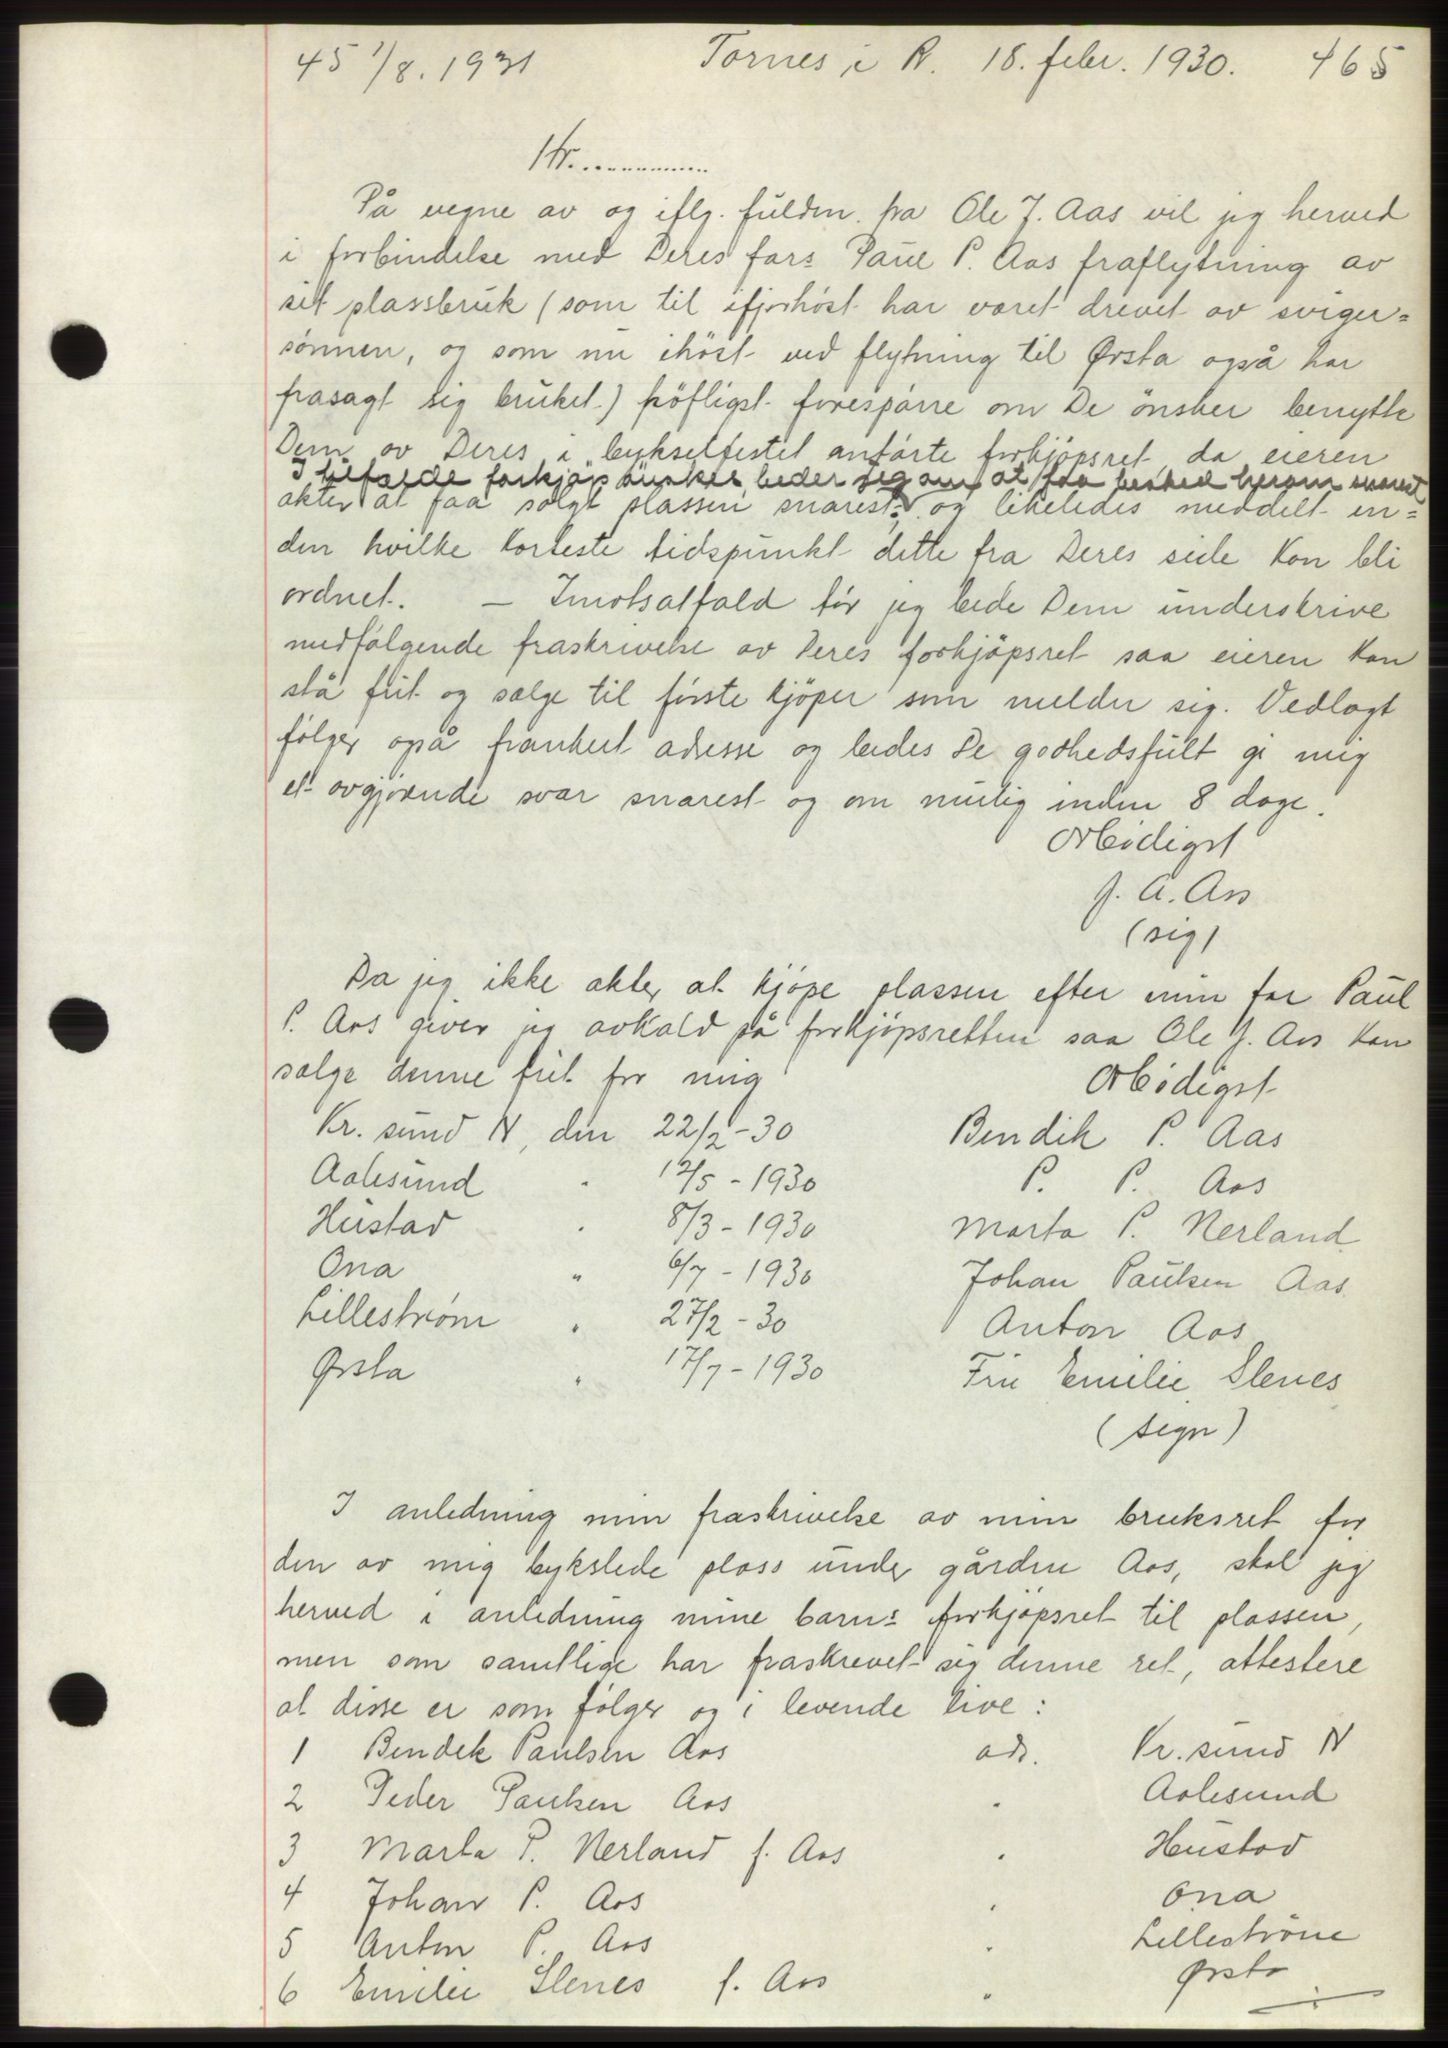 45 1/8. 1931 Tornes i R. 18. febr. 1930. 465
Hr. ............
På vegne av og iflg. fuldm. fra Ole J. Aas vil jeg herved
i forbindelse med Deres fars Paul P. Aas fraflytning av
sit plassbruk (som til ifjorhöst har været drevet av sviger=
sönnen, og som nu ihöst ved flytning til Ørsta også har
frasagt sig bruket) höfligst forespörre om De önsker benytte
Dem av Deres i bykselfestet anförte forkjöpsret da eieren
I tilfælde forkjöp önskes, beder jeg om at faa besked herom snarest
akter at faa solgt plassen snarest, og likeledes meddelt in=
den hvilke korteste tidspunkt dette fra Deres side kan bli
ordnet. — Imotsatfald tör jeg bede Dem underskrive
medfölgende fraskrivelse av Deres forkjöpsret saa eieren kan
stå frit og sælge til förste kjöper som melder sig. Vedlagt
fölger også frankert adresse og bedes De godhedsfult gi mig
et avgjörende svar snarest og om mulig inden 8 dage.
Ærbödigst
J. A. Aas
(sig)
Da jeg ikke akter at kjöpe plassen efter min far Paul
P. Aas giver jeg avkald på forkjöpsretten saa Ole J. Aas kan
sælge denne frit for mig
Ærbödigst
Kr. sund N, den 22/2-30 Bendik P. Aas
Aalesund " 12/5 - 1930 P. P. Aas
Hustad " 8/3 - 1930 Marta P. Nerland
Ona " 6/7 - 1930 Johan Paulsen Aas
Lilleström " 27/2 - 30 Anton Aas
Ørsta " 17/7 - 1930 Fru Emilie Slenes
(sign)
I anledning min fraskrivelse av min bruksret for
den av mig bykslede plass under gården Aas, skal jeg
herved i anledning mine barns forkjöpsret til plassen,
men som samtlige har fraskrevet sig denne ret, attestere
at disse er som fölger og i levende live:
1 Bendik Paulsen Aas adr. Kr. sund N
2 Peder Paulsen Aas " Aalesund
3 Marta P. Nerland f. Aas " Hustad
4 Johan P. Aas " Ona
5 Anton P. Aas " Lilleström
6 Emilie Slenes f. Aas " Ørsta